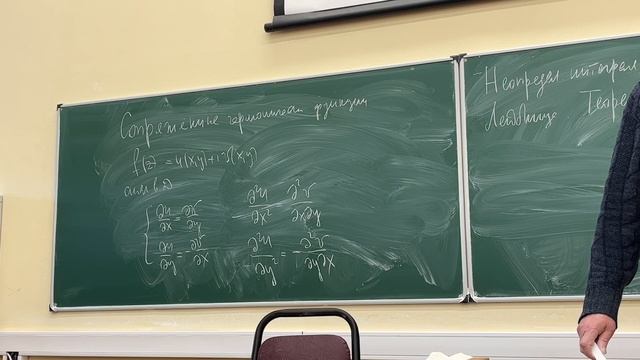 Сопряженные гармонически функции
f(z) = u(x,y) + i v(x,y)
анал. в D
∂u/∂x = ∂v/∂y ∂²u/∂x² ∂²v/∂x∂y
∂u/∂y = -∂v/∂x ∂²u/∂y² = ∂²v/∂y∂x
Неопредел интеграл
Лейбница Теоре